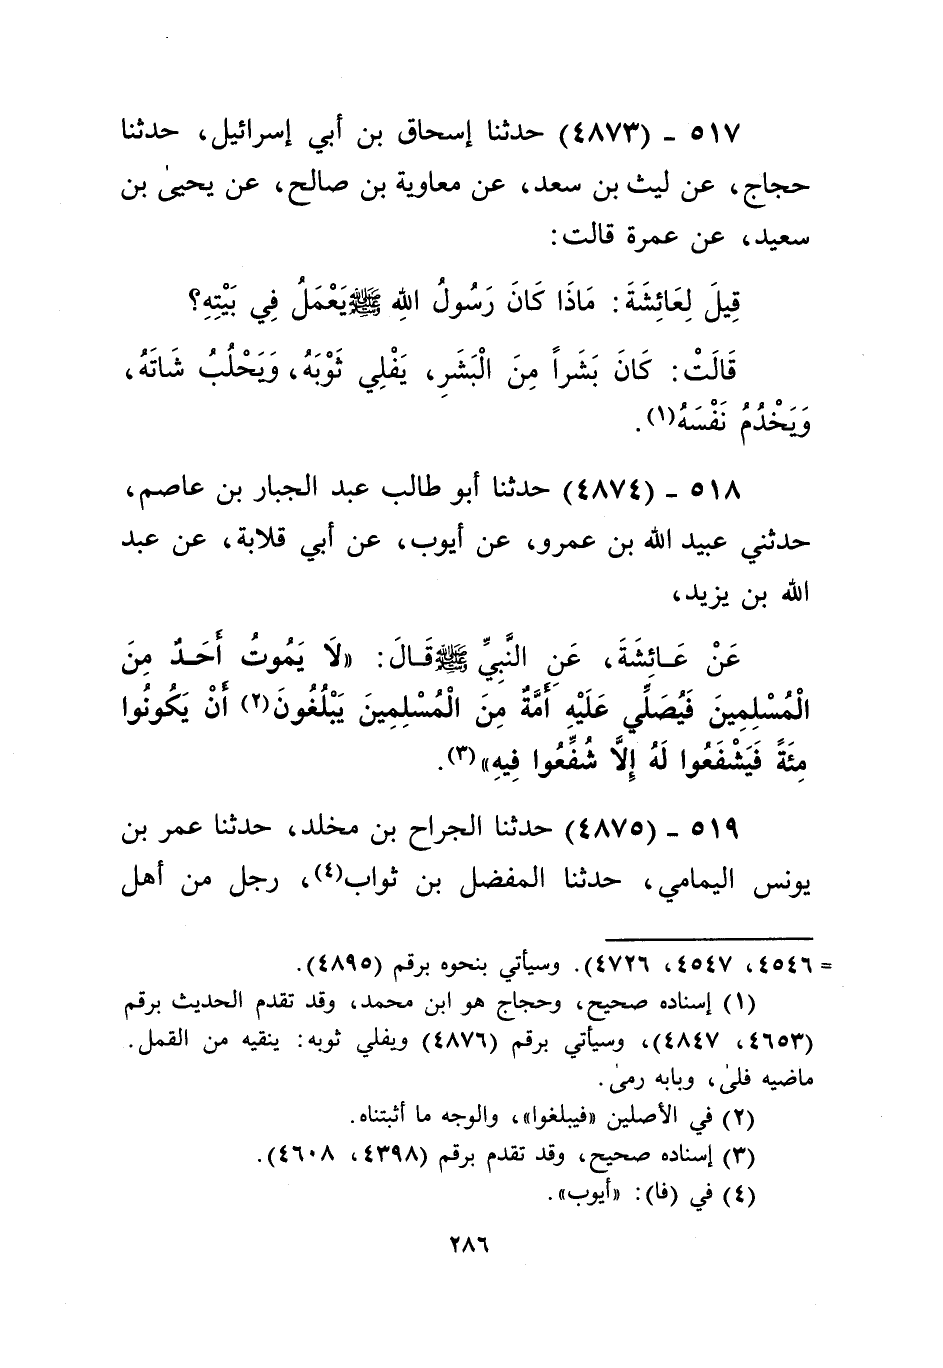 ٥١٧ ـ (٤٨٧٣) حدثنا إسحاق بن أبي إسرائيل، حدثنا
حجاج، عن ليث بن سعد، عن معاوية بن صالح، عن يحيىٰ بن
سعيد، عن عمرة قالت:
قِيلَ لِعَائِشَةَ: مَاذَا كَانَ رَسُولُ اللهِ ﷺ يَعْمَلُ فِي بَيْتِهِ؟
قَالَتْ: كَانَ بَشَراً مِنَ الْبَشَرِ، يَفْلِي ثَوْبَهُ، وَيَحْلُبُ شَاتَهُ،
وَيَخْدُمُ نَفْسَهُ(١).
٥١٨ ـ (٤٨٧٤) حدثنا أبو طالب عبد الجبار بن عاصم،
حدثني عبيد الله بن عمرو، عن أيوب، عن أبي قلابة، عن عبد
الله بن يزيد،
عَنْ عَائِشَةَ، عَنِ النَّبِيِّ ﷺ قَالَ: «لَا يَمُوتُ أَحَدٌ مِنَ
الْمُسْلِمِينَ فَيُصَلِّي عَلَيْهِ أُمَّةٌ مِنَ الْمُسْلِمِينَ يَبْلُغُونَ(٢) أَنْ يَكُونُوا
مِئَةً فَيَشْفَعُوا لَهُ إِلَّا شُفِّعُوا فِيهِ»(٣).
٥١٩ ـ (٤٨٧٥) حدثنا الجراح بن مخلد، حدثنا عمر بن
يونس اليمامي، حدثنا المفضل بن ثواب(٤)، رجل من أهل
= ٤٥٤٦، ٤٥٤٧، ٤٧٢٦). وسيأتي بنحوه برقم (٤٨٩٥).
(١) إسناده صحيح، وحجاج هو ابن محمد، وقد تقدم الحديث برقم
(٤٦٥٣، ٤٨٤٧)، وسيأتي برقم (٤٨٧٦) ويفلي ثوبه: ينقيه من القمل.
ماضيه فلىٰ، وبابه رمىٰ.
(٢) في الأصلين «فيبلغوا»، والوجه ما أثبتناه.
(٣) إسناده صحيح، وقد تقدم برقم (٤٣٩٨، ٤٦٠٨).
(٤) في (فا): «أيوب».
٢٨٦